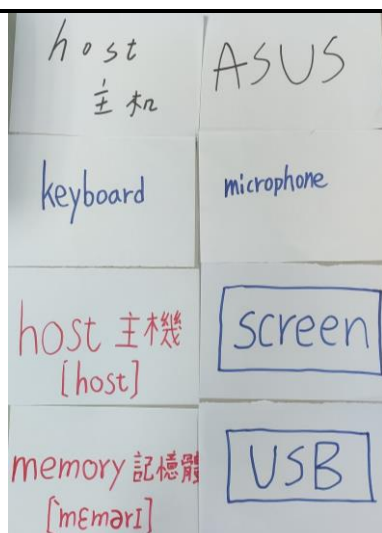 host
主机
ASUS
keyboard
microphone
host 主機
[host]
screen
memory 記憶體
[ˋmɛmərɪ]
USB